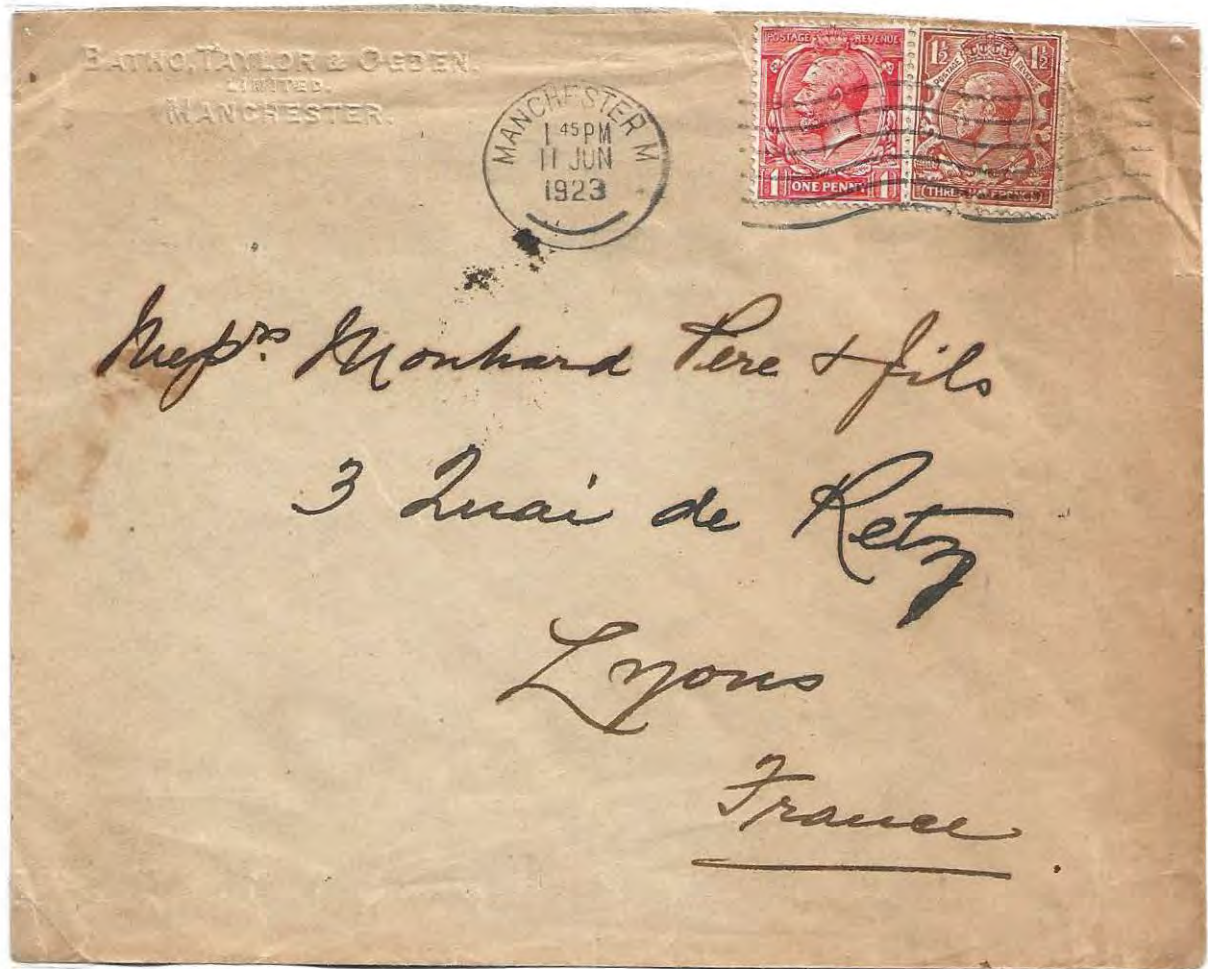 BATHO, TAYLOR & OGDEN.
LIMITED.
MANCHESTER.
MANCHESTER M
1 45 PM
11 JUN
1923
POSTAGE REVENUE
1 ONE PENNY 1
1½ 1½
POSTAGE REVENUE
THREE HALFPENCE
Messrs. Monhard Pere & fils
3 Quai de Retz
Lyons
France